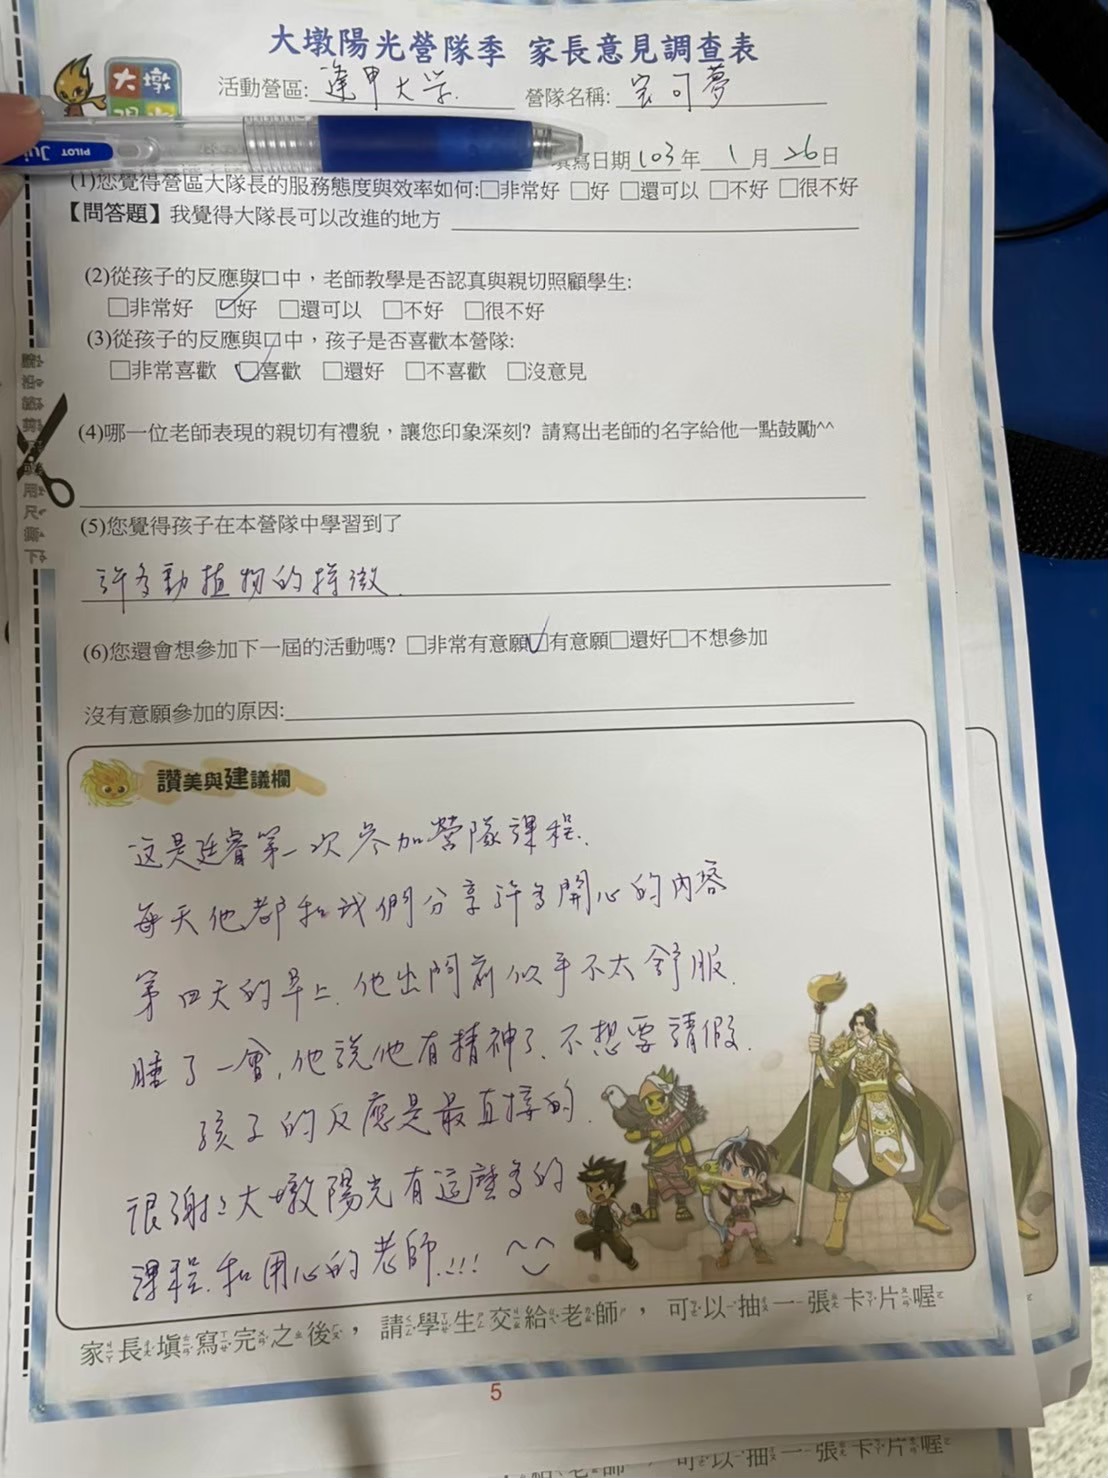 大墩陽光營隊季 家長意見調查表
大墩
活動營區: 逢甲大学. 營隊名稱: 宝可夢
PILOT Jui
填寫日期103年 1月 26日
(1)您覺得營區大隊長的服務態度與效率如何:□非常好 □好 □還可以 □不好 □很不好
【問答題】我覺得大隊長可以改進的地方
(2)從孩子的反應與口中，老師教學是否認真與親切照顧學生:
□非常好 ☑好 □還可以 □不好 □很不好
(3)從孩子的反應與口中，孩子是否喜歡本營隊:
□非常喜歡 ☑喜歡 □還好 □不喜歡 □沒意見
(4)哪一位老師表現的親切有禮貌，讓您印象深刻? 請寫出老師的名字給他一點鼓勵^^
(5)您覺得孩子在本營隊中學習到了
許多動植物的特徵.
(6)您還會想參加下一屆的活動嗎? □非常有意願☑有意願□還好□不想參加
沒有意願參加的原因:
讚美與建議欄
这是廷睿第一次参加營隊課程.
每天他都和我們分享許多開心的內容
第四天的早上.他出門前似乎不太舒服.
睡了一會,他說他有精神了.不想要請假.
孩子的反應是最直接的.
很謝謝大墩陽光有這麼多的
課程.和用心的老師.!!! ^^
家長填寫完之後，請學生交給老師，可以抽一張卡片喔
5
可以抽一張卡片喔